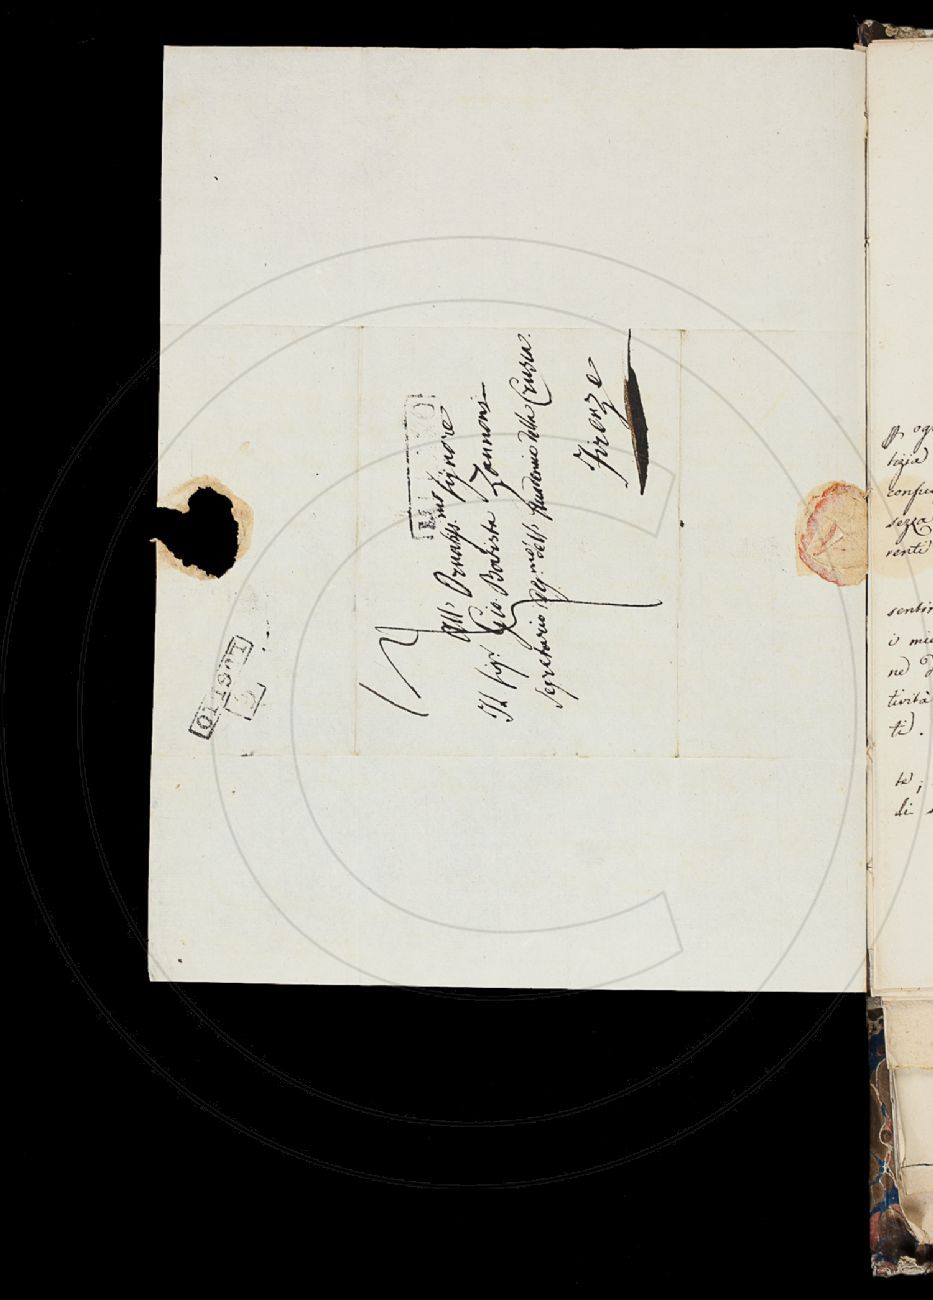 All' Ornatiss.mo Signore
Il Sig.r Gio. Batista Zannoni
Segretario dell' Accademia della Crusca.
Firenze
LUGLIO
ogn
tizia
confid
sezza
renti
sentim
i mie
ne d
tività
te).
te;
di s